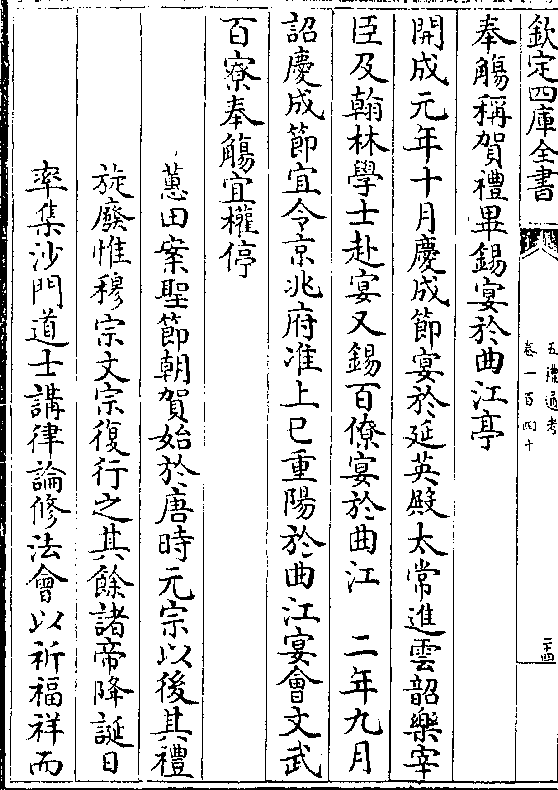 欽定四庫全書
五禮通考
卷一百四十
奉觴稱賀禮畢錫宴於曲江亭
開成元年十月慶成節宴於延英殿太常進雲韶樂宰
臣及翰林學士赴宴又錫百僚宴於曲江　二年九月
詔慶成節宜令京兆府准上巳重陽於曲江宴會文武
百寮奉觴宜權停
蕙田案聖節朝賀始於唐時元宗以後其禮
旋廢惟穆宗文宗復行之其餘諸帝降誕日
率集沙門道士講律論修法會以祈福祥而